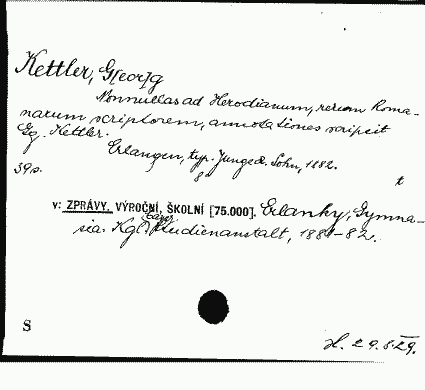 Kettler, G[eor]g
Nonnullas ad Herodianum, rerum Roma-
narum scriptorem, annotationes scripsit
Gg. Kettler.
Erlangen, typ. Junge & Sohn, 1882.
39 s. 8° t
v: ZPRÁVY, VÝROČNÍ, ŠKOLNÍ [75.000]. Erlanky, Gymna-
sia. Kgl. bayer. Studienanstalt, 1881-82.
S
H. 29.8.29.